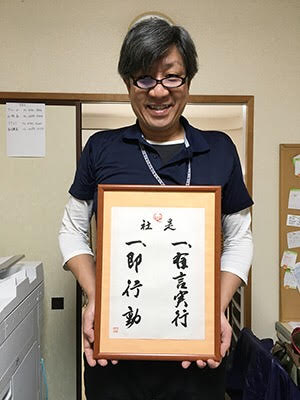 社是
一、有言実行
一、即行動